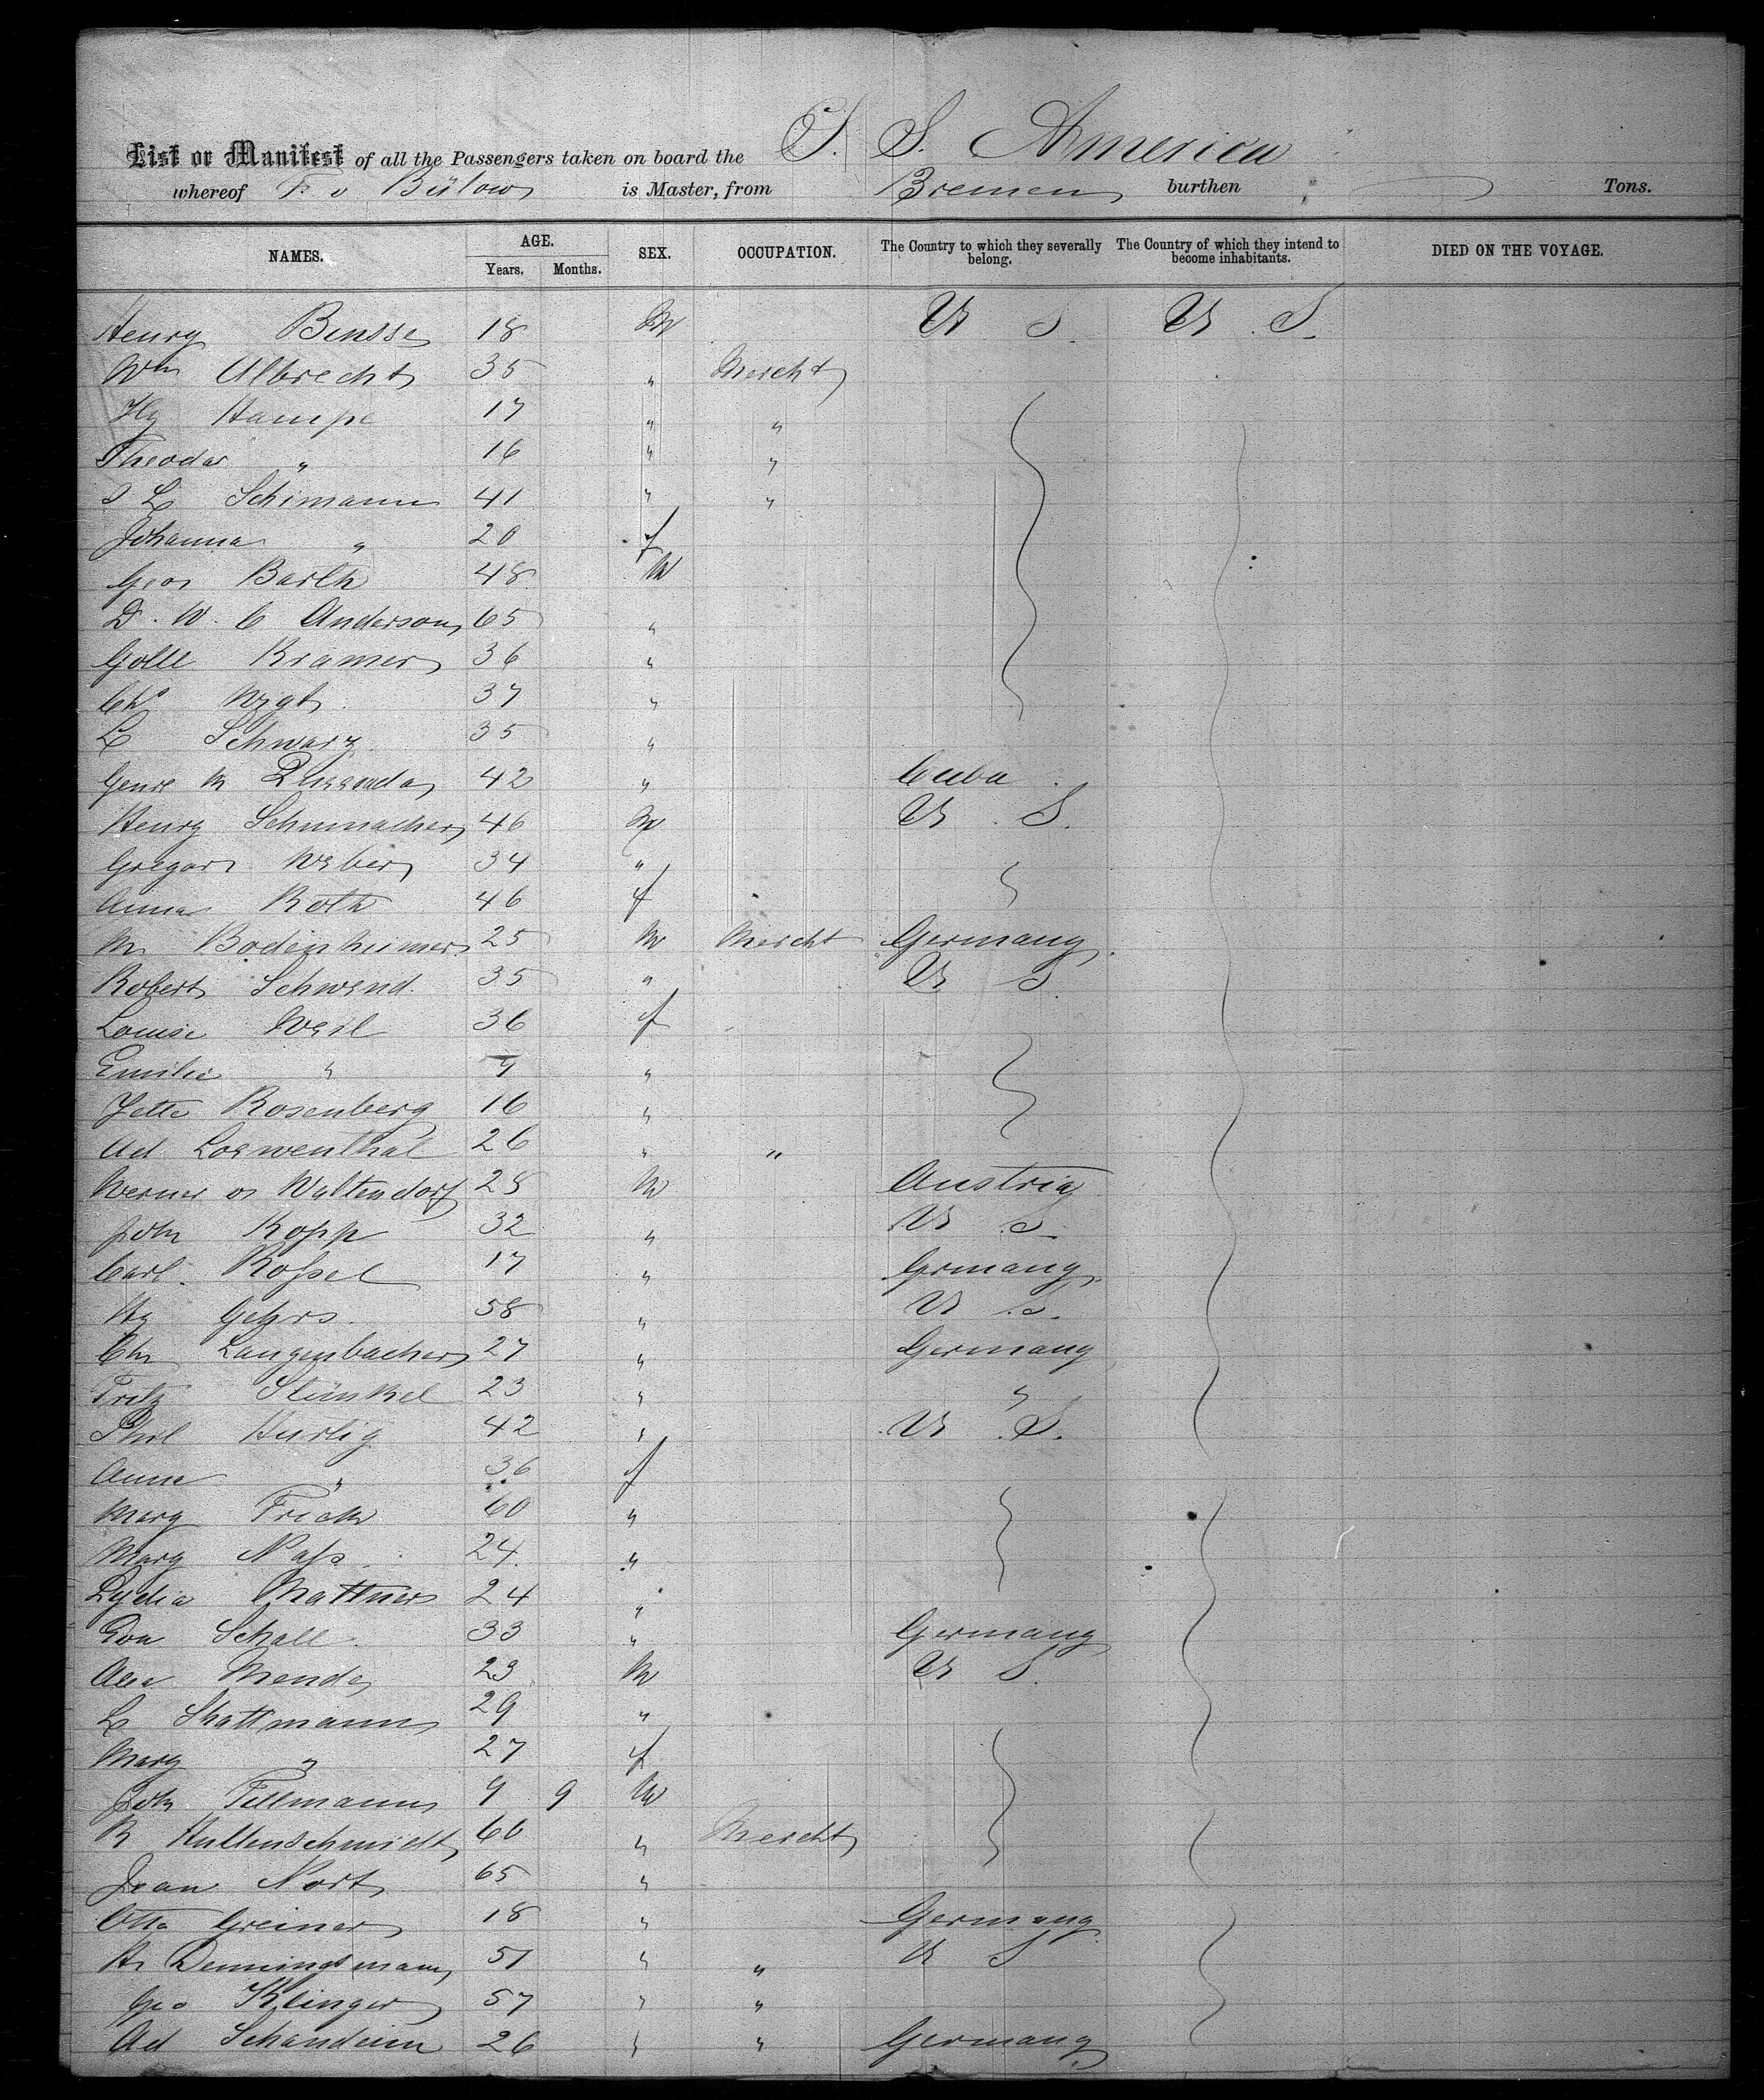 List or Manifest of all the Passengers taken on board the S. S. America
whereof F. v Bülow is Master, from Bremen burthen Tons.
NAMES. AGE. Years. Months. SEX. OCCUPATION. The Country to which they severally belong. The Country of which they intend to become inhabitants. DIED ON THE VOYAGE.
Henry Bensse 18 M U S U S.
Wm Albrecht 35 " Mercht
Hy Hampe 17 " "
Theodor " 16 " "
L Schimann 41 " "
Johanna " 20 f
Geo Barth 48 M
D. W. C Anderson 65 "
Kramer 36 "
Chs 37 "
L Schwarz 35 "
M 42 " Cuba
Henry Schumacher 46 M U S.
Gregor Weber 34 "
Anna Roth 46 f
M Bodenheimer 25 M Mercht Germany
Robert Schwend. 35 " U S.
Louise Weil 36 f
Emilie " "
Jette Rosenberg 16 "
Ad Loewenthal 26 " "
Werner v Waltendorf 28 M Austria
John Kopp 32 " U S
Carl Rossel 17 " Germany
Hy Gehrs. 58 " U S.
Chr Langenbacher 27 " Germany
Fritz Stünkel 23 " "
Phil Hurlig 42 " U S.
Anna " 36 f
Mary Frick 60 "
Mary Nass 24. "
Lydia Mattner 24 "
Eva Schall 33 " Germany
Alex Mende 23 M U S.
L Shattmann 29 "
Mary " 27 f
John Tellmann 9 9 M
R Hullenschmidt 60 " Mercht
Jean Nort 65 "
Otto Greiner 18 " Germany
H. 51 " " U S
Geo Klinger 57 " "
Ad Schandein 26 " " Germany